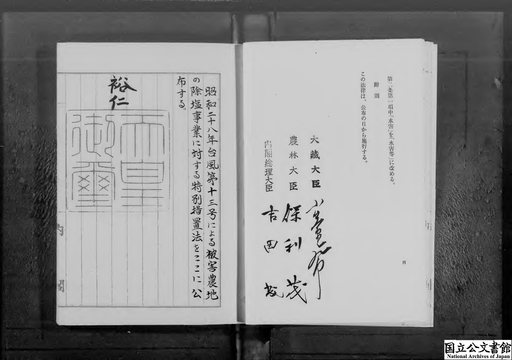 第二条第一項中「水害」を「水害等」に改める。
附則
この法律は、公布の日から施行する。
大蔵大臣 小笠原
農林大臣 保利茂
内閣総理大臣 吉田茂
昭和二十八年台風第十三号による被害農地
の除塩事業に対する特別措置法をここに公
布する。
裕仁
天皇
御璽
国立公文書館
National Archives of Japan